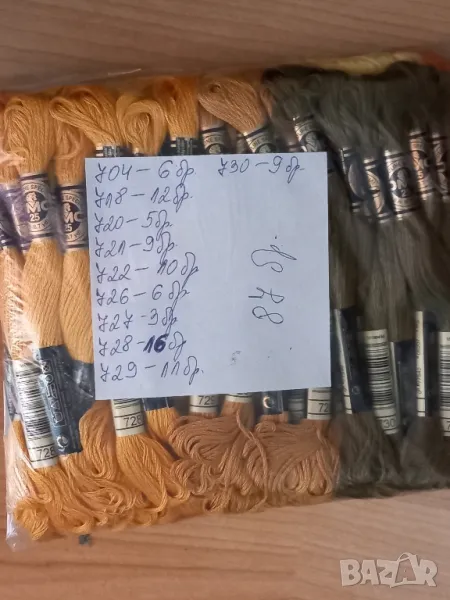 704 – 6 бр.
718 – 12 бр.
720 – 5 бр.
721 – 9 бр.
722 – 10 бр.
726 – 6 бр.
727 – 3 бр.
728 – 16 бр.
729 – 11 бр.
730 – 9 бр.
87 бр.
25
728
728
BAZAR